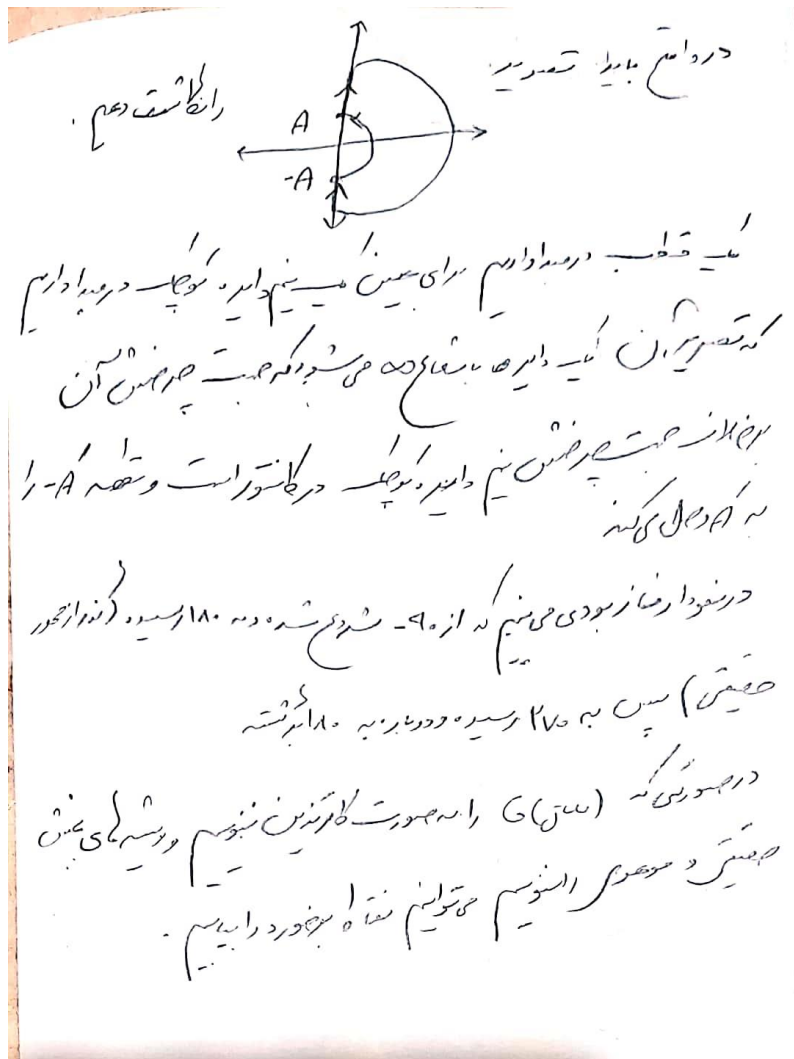 در واقع باید تصویر
را نگاشت دهیم .
A
-A
یک قطب در مبدا داریم برای همین یک نیم دایره کوچک در مبدا داریم
که تصویر آن یک دایره با شعاع ∞ می‌شود که جهت چرخش آن
برخلاف جهت چرخش نیم دایره کوچک در کانتور است و نقطه -A را
به A وصل می‌کند
در نمودار فاز بودی می‌بینیم که از -90 شروع شده و به 180 رسیده (گذر از محور
حقیقی) سپس به 270 رسیده و دوباره به 180 برگشته
در صورتی که G(jω) را به صورت کارتزین بنویسیم و ریشه های بخش
حقیقی و موهومی را بنویسیم می‌توانیم نقاط برخورد را بیابیم .